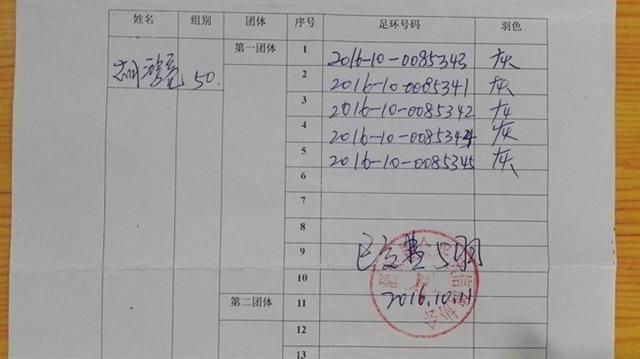 姓名 组别 团体 序号 足环号码 羽色
第一团体 1 2016-10-0085343 灰
50. 2 2016-10-0085341 灰
3 2016-10-0085342 灰
4 2016-10-0085344 灰
5 2016-10-0085345 灰
6
7
8
9 已交费5羽
10
第二团体 11 2016.10.11
12
13